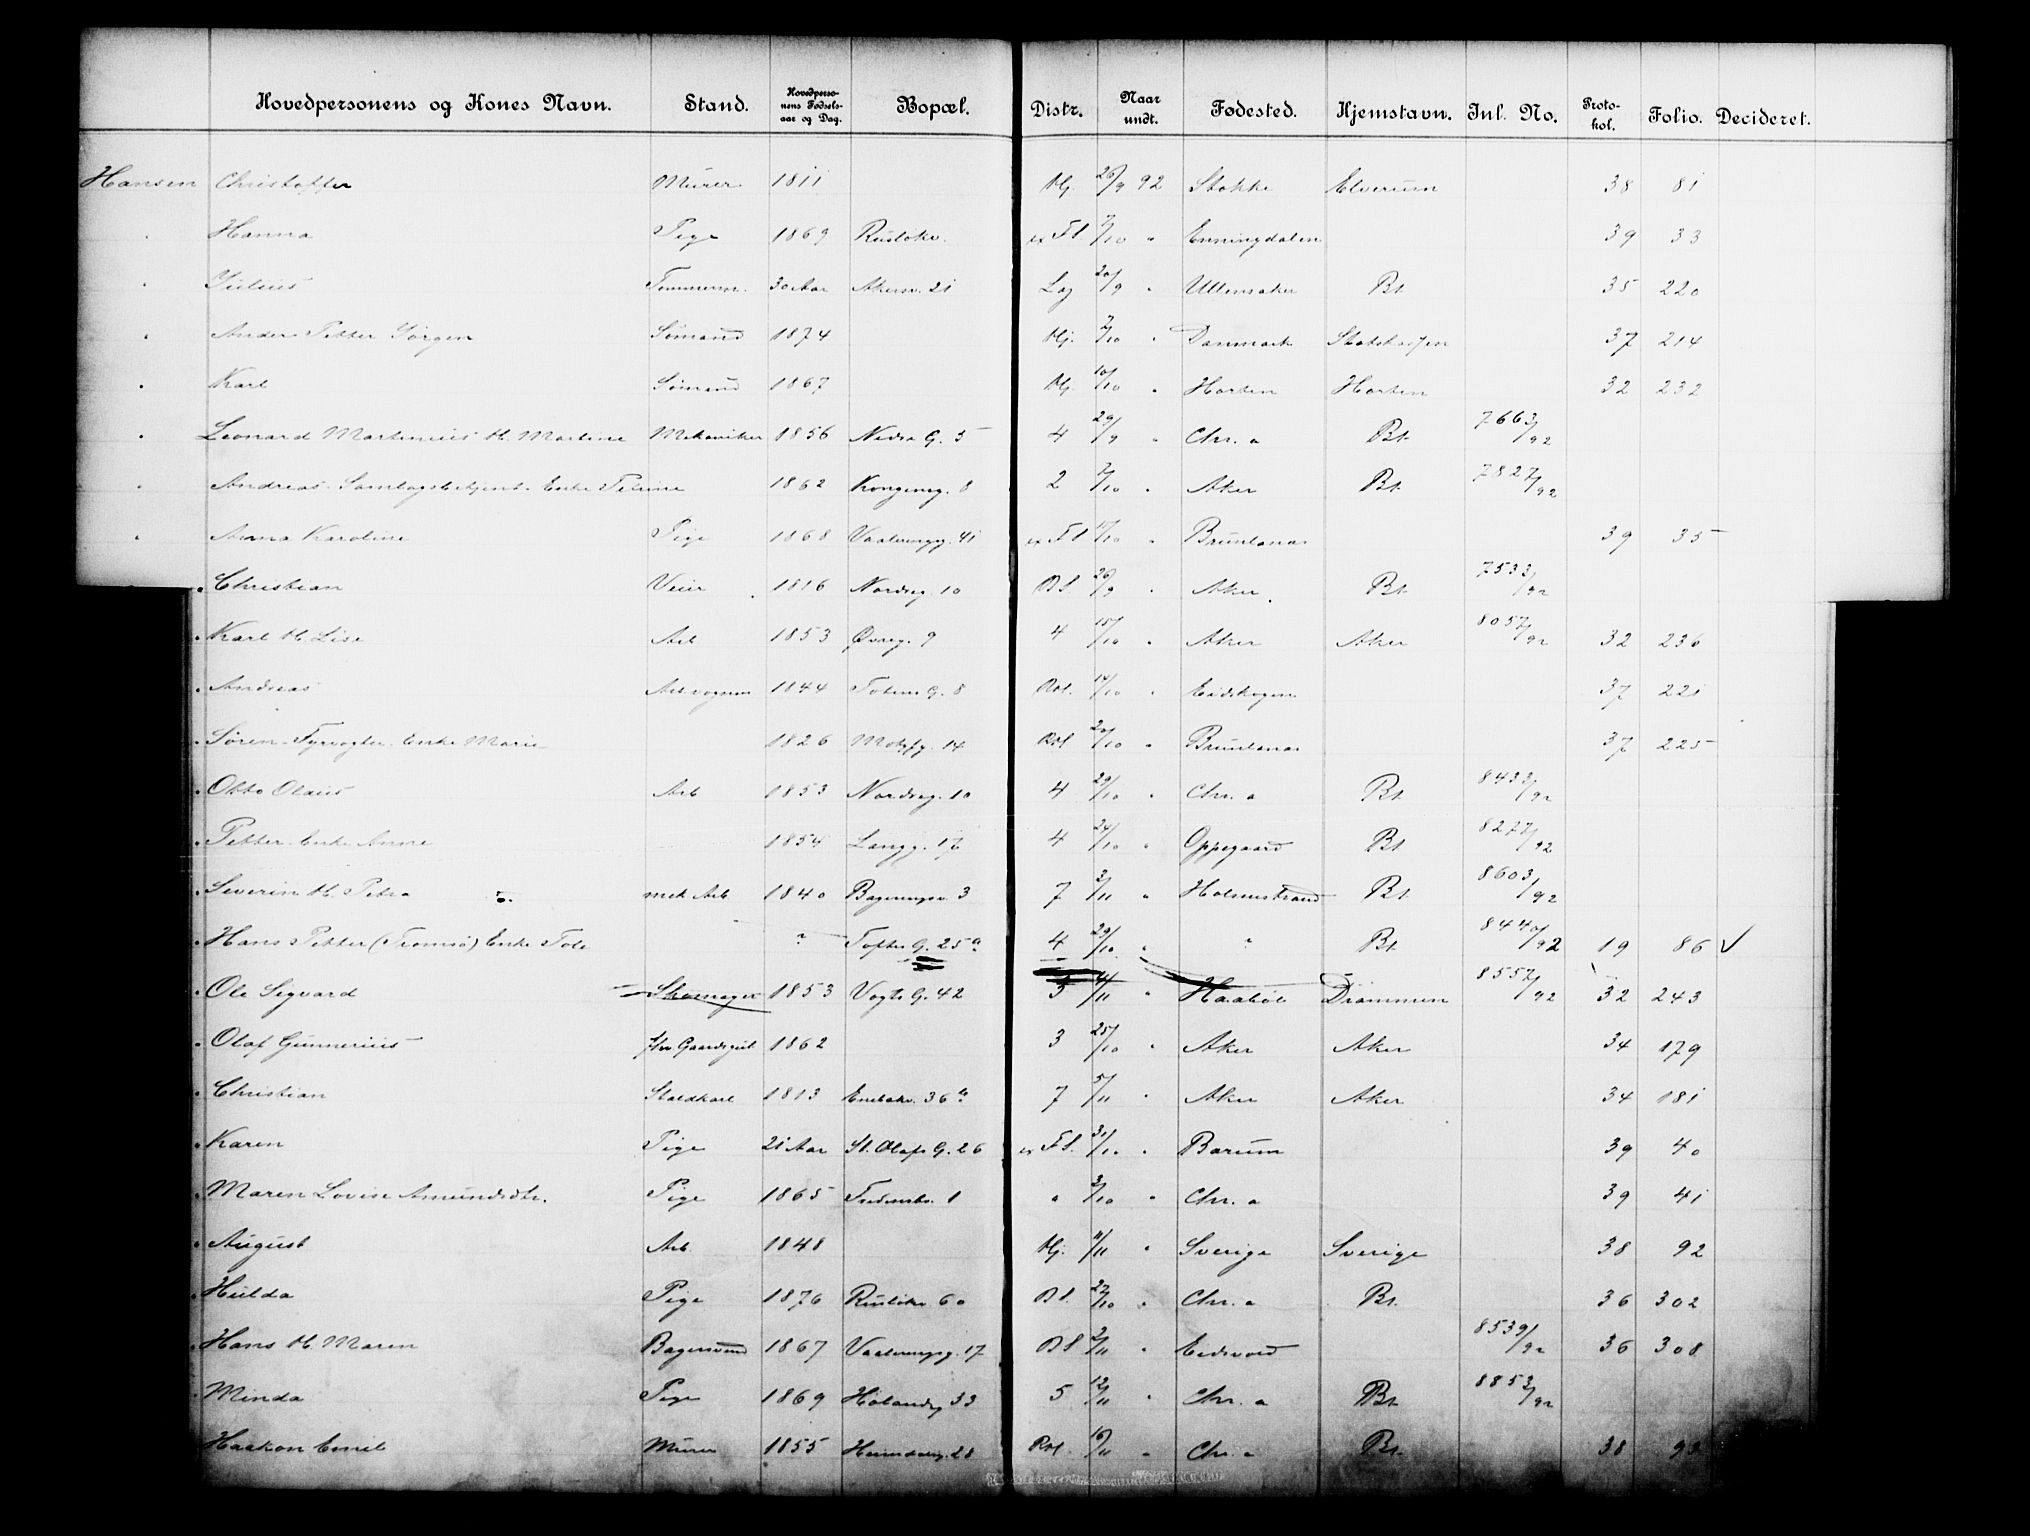 Hovedpersonens og Kones Navn. Stand. Hovedpersonens Fødselsaar og Dag. Bopæl. Distr. Naar undt. Fødested. Hjemstavn. Inl. No. Protokol. Folio. Decideret.
Hansen Christoffer Murer 1811 Hj. 26/9 92 Stokke Elverum 38 81
" Hanna Pige 1869 Ruseløkv. ex Fl 7/10 " Enningdalen 39 33
" Julius Tømmerm. 30 Aar Akersv. 21 Lag 20/9 " Ullensaker Bt. 35 220
" Anders Petter Jørgen Sømand 1874 Hj. 7/10 " Danmark 37 214
" Karl Sømand 1867 Hj. 10/10 " Horten Horten 32 232
" Leonard Martinius H. Martine Mekaniker 1856 Nedre G. 5 4 29/9 " Chr.a Bt. 7663/92
" Andreas. Enke Petrine 1862 Kongensg. 8 2 7/10 " Aker Bt. 7827/92
" Anna Karoline Pige 1868 Vaalerengg. 41 ex Fl 17/10 " Brunlanæs 39 35
" Christian Veier 1816 Nordreg. 10 Bl. 26/9 " Aker Bt. 7533/92
" Karl H. Lise Arb 1853 Øvreg. 9 4 15/10 " Aker Aker 8057/92 32 236
" Andreas Arb vognm 1844 Totens G. 8 Rol. 14/10 " Eidskogen 37 221
" Søren Fyrvogter Enke Marie 1826 Motzfg. 14 Rol 20/10 " Brunlanæs 37 225
" Otto Olaus Arb 1853 Nordreg. 10 4 29/10 " Chr.a Bt. 8433/92
" Petter Enke Anne 1854 Langg. 17 4 24/10 " Oppegaard Bt. 8277/92
" Severin H. Petra mek Arb. 1840 3 7 3/11 " Holmestrand Bt. 8603/92
" Hans Petter (Tromsø) Enke ? Toftes G. 25a 4 29/10 " " Bt 8440/92 19 86 ✓
" Ole Sigvard Skomager 1853 Vogts G. 42 3 4/11 " Haabøl Drammen 8557/92 32 243
" Olaf Gunnerius fhv. Gaardsgut 1862 3 25/10 " Aker Aker 34 179
" Christian Staldkarl 1813 Enebakv. 36 b 7 5/11 " Aker Aker 34 181
" Karen Pige 21 Aar St. Olafs G. 26 ex Fl. 31/10 " Bærum 39 40
" Maren Lovise Amundsdtr. Pige 1865 1 " 3/10 " Chr.a 39 41
" August Arb. 1848 Hj. 11/11 " Sverige Sverige 38 92
" Hulda Pige 1876 Ruseløkv. 60 Bl. 27/10 " Chr.a Bt. 36 302
" Hans H. Maren Bagersvend 1867 Vaalerengg. 17 Bl 2/11 " Eidsvold 8539/92 36 308
" Minda Pige 1869 Hølandsg 33 5 12/11 " Chr.a Bt. 8853/92
" Haakon Emil Murer 1855 Heimdalsg. 28 Rol. 16/11 " Chr.a Bt. 38 93